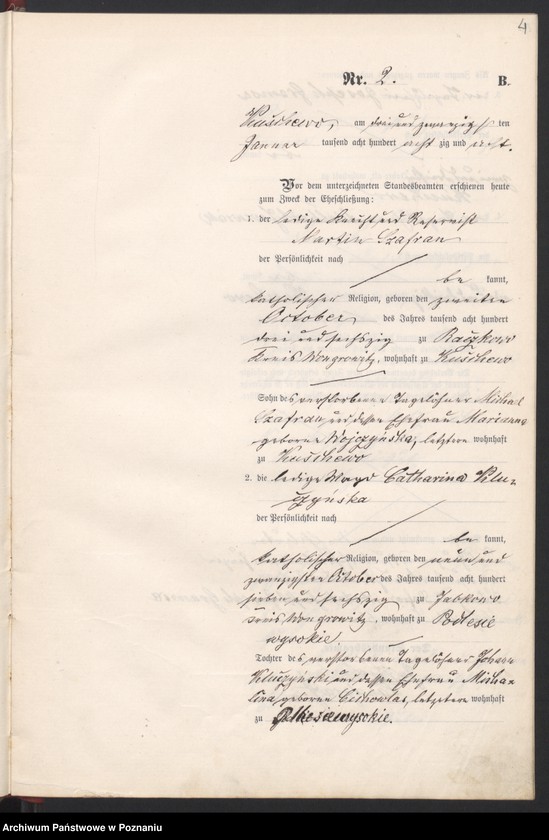 4
Nr. 2. B.
Kuschewo, am drei und zwanzigsten
Januar tausend acht hundert acht zig und acht.
Vor dem unterzeichneten Standesbeamten erschienen heute
zum Zweck der Eheschließung:
1. der ledige Knecht und Reservist
Martin Szafran
der Persönlichkeit nach
be kannt,
katholischer Religion, geboren den zweiten
October des Jahres tausend acht hundert
drei und sechszig zu Raczkowo
Kreis Wongrowitz, wohnhaft zu Kuschewo
Sohn des verstorbenen Tagelöhner Michael
Szafran und dessen Ehefrau Marianna
geborne Wojczyńska, letztere wohnhaft
zu Kuschewo
2. die ledige Magd Catharina Klu-
czyńska
der Persönlichkeit nach
be kannt,
katholischer Religion, geboren den neun und
zwanzigsten October des Jahres tausend acht hundert
sieben und sechszig zu Jabkowo
Kreis Wongrowitz, wohnhaft zu Podlesie
wysokie
Tochter des verstorbenen Tagelöhners Johann
Kluczyński und dessen Ehefrau Micha-
lina, geborne Cichowlas, letztere wohnhaft
zu Podlesiewysokie.
Archiwum Państwowe w Poznaniu